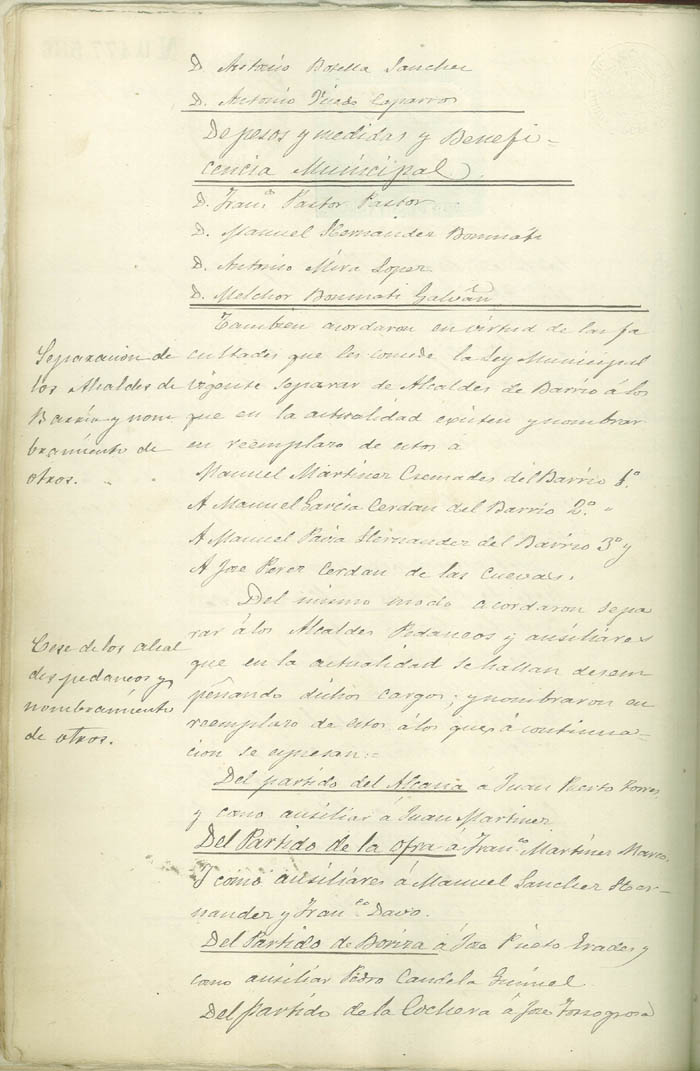 D. Antonio Botella Sanchez
D. Antonio Pujdo Caparros
De pesos y medidas y Benefi-
cencia Municipal.
D. Franco Pastor Pastor
D. Manuel Hernandez Bonmati
D. Antonio Mira Lopez
D. Melchor Bonmati Galvañ
Tambien acordaron en virtud de las fa
cultades que les concede la Ley Municipal
vigente separar de Alcaldes de Barrio á los
que en la actualidad existen y nombrar
en reemplazo de estos á
Separacion de
los Alcaldes de
Barrio y nom
bramiento de
otros.
Manuel Martinez Cremades del Barrio 1º.
A Manuel Garcia Cerdan del Barrio 2º. "
A Manuel Hernandez del Barrio 3º y
A Jose Perez Cerdan de las Cuevas.
Del mismo modo acordaron sepa
rar á los Alcaldes Pedaneos y auxiliares
que en la actualidad se hallan desem
peñando dichos cargos; y nombraron en
reemplazo de estos á los que á continua-
cion se espresan:=
Cese de los alcal
des pedaneos y
nombramiento
de otros.
Del partido del Alcaná á Juan Puerto Torres
y como auxiliar á Juan Martinez
Del Partido de la Ofra á Franco Martinez Marco.
Y como auxiliares á Manuel Sanchez Her-
nandez y Franco Davo.
Del Partido de Boriza á Jose Prieto y
como auxiliar Pedro Candela
Del partido de la Cochera á Jose Torregrosa